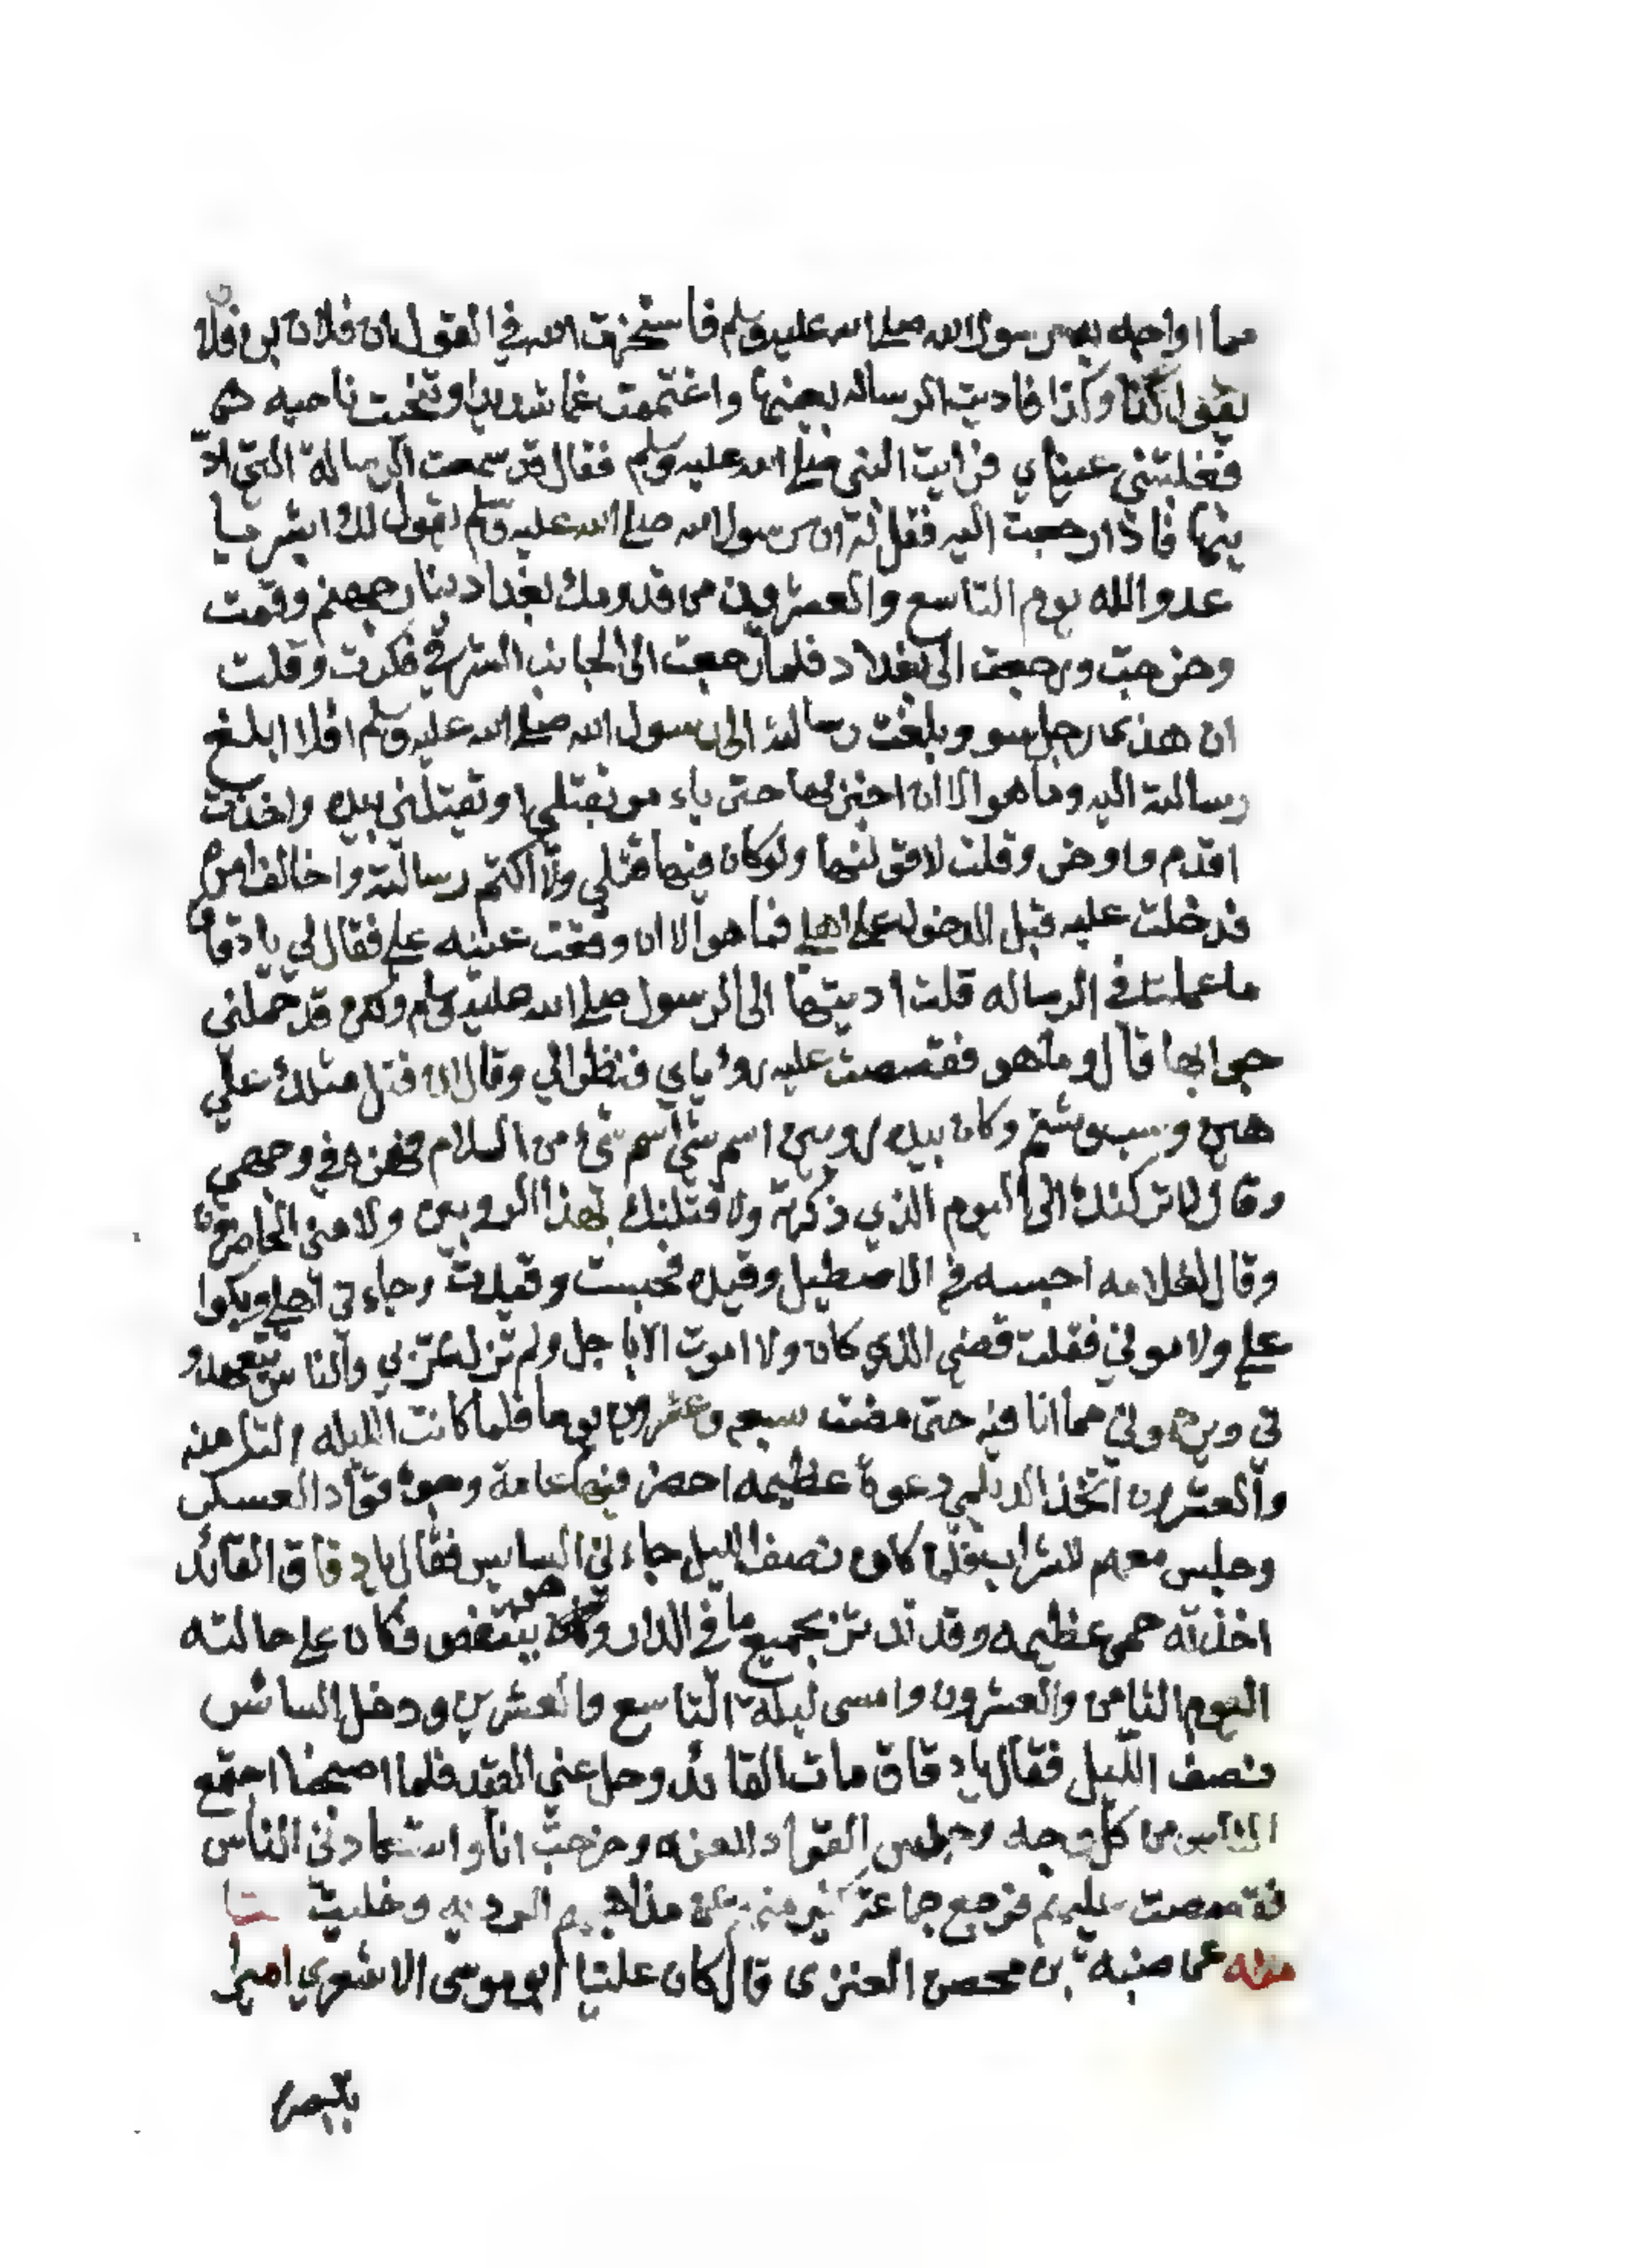 مما اواجهه به رسول الله صلى الله عليه وسلم فاستخرت الله في القول ان فلان بن فلان
يقول كذا وكذا فاديت الرساله بعينها واغتممت غما شديدا وتنحيت ناحيه
فغلبتني عيناي فرايت النبي صلى الله عليه وسلم فقال قد سمعت الرسالة التي اد
يتها فاذا رجعت اليه فقل له ان رسول الله صلى الله عليه وسلم يقول لك ابشر يا
عدو الله يوم التاسع والعشرون من قدومك بغداد بنار جهنم وقمت
وخرجت ورجعت الى بغداد فلما رجعت الى الجانب الشرقي فكرت وقلت
ان هذا رجل سو وبلغت رسالته الى رسول الله صلى الله عليه وسلم افلا ابلغ
رسالته اليه وما هو الا ان اخبره بها حتى ياءمر بقتلي او يقتلني بيده واخذت
اقدم واوخر وقلت لاقولنها ولو كان فيها قتلي ولا اكتم رسالته واخالف امره
فدخلت عليه قبل الدخول على اهلي فما هو الا ان وقعت عينه علي فقال لي يا دقاق
ما عملت في الرساله قلت اديتها الى الرسول صلى الله عليه وسلم ولكن قد حملني
جوابها قال وما هو فقصصت عليه روياي فنظر الي وقال ان قتل مثلك علي
هين وسب وشتم وكان بيده زوبين اسم شي اسم شيء من السلام فهزه في وجهي
وقال لاتركنك الى اليوم الذي ذكرته ولاقتلنك بهذا الزوبين ولامني الحاضرون
وقال لغلامه احبسه في الاصطبل وقيده فحبست وقيدت وجاءني اهلي وبكوا
علي ولاموني فقلت قضي الذي كان ولا اموت الا باجل ولم تزل تمر بي والناس يتعهدو
ني ويرحموني مما انا فيه حتى مضت سبع وعشرون يوما فلما كانت الليله الثامنه
والعشرون اتخذ الديلمي دعوة عظيمه احضر فيها عامة وجوه قواد العسكر
وجلس معهم للشراب فلما كان نصف الليل جاءني السايس فقال يا دقاق القائد
اخذته حمى عظيمه وقد تدثر بجميع ما في الدار وهو ينتفض فكان على حالته
اليوم الثامن والعشرون وامسى ليلة التاسع والعشرين ودخل السائس
نصف الليل فقال يا دقاق مات القائد وحل عني القيد فلما اصبحنا اجتمع
الناس من كل وجه وجلس القواد للعزاء وخرجت انا واستعادني الناس
فقصصت عليهم فرجع جماعة كثير منهم عن مذاهبهم الرديه وخليت
عن ضبة بن محصن العنزى قال كان علينا ابو موسى الاشعري اميرا
بالبصرة